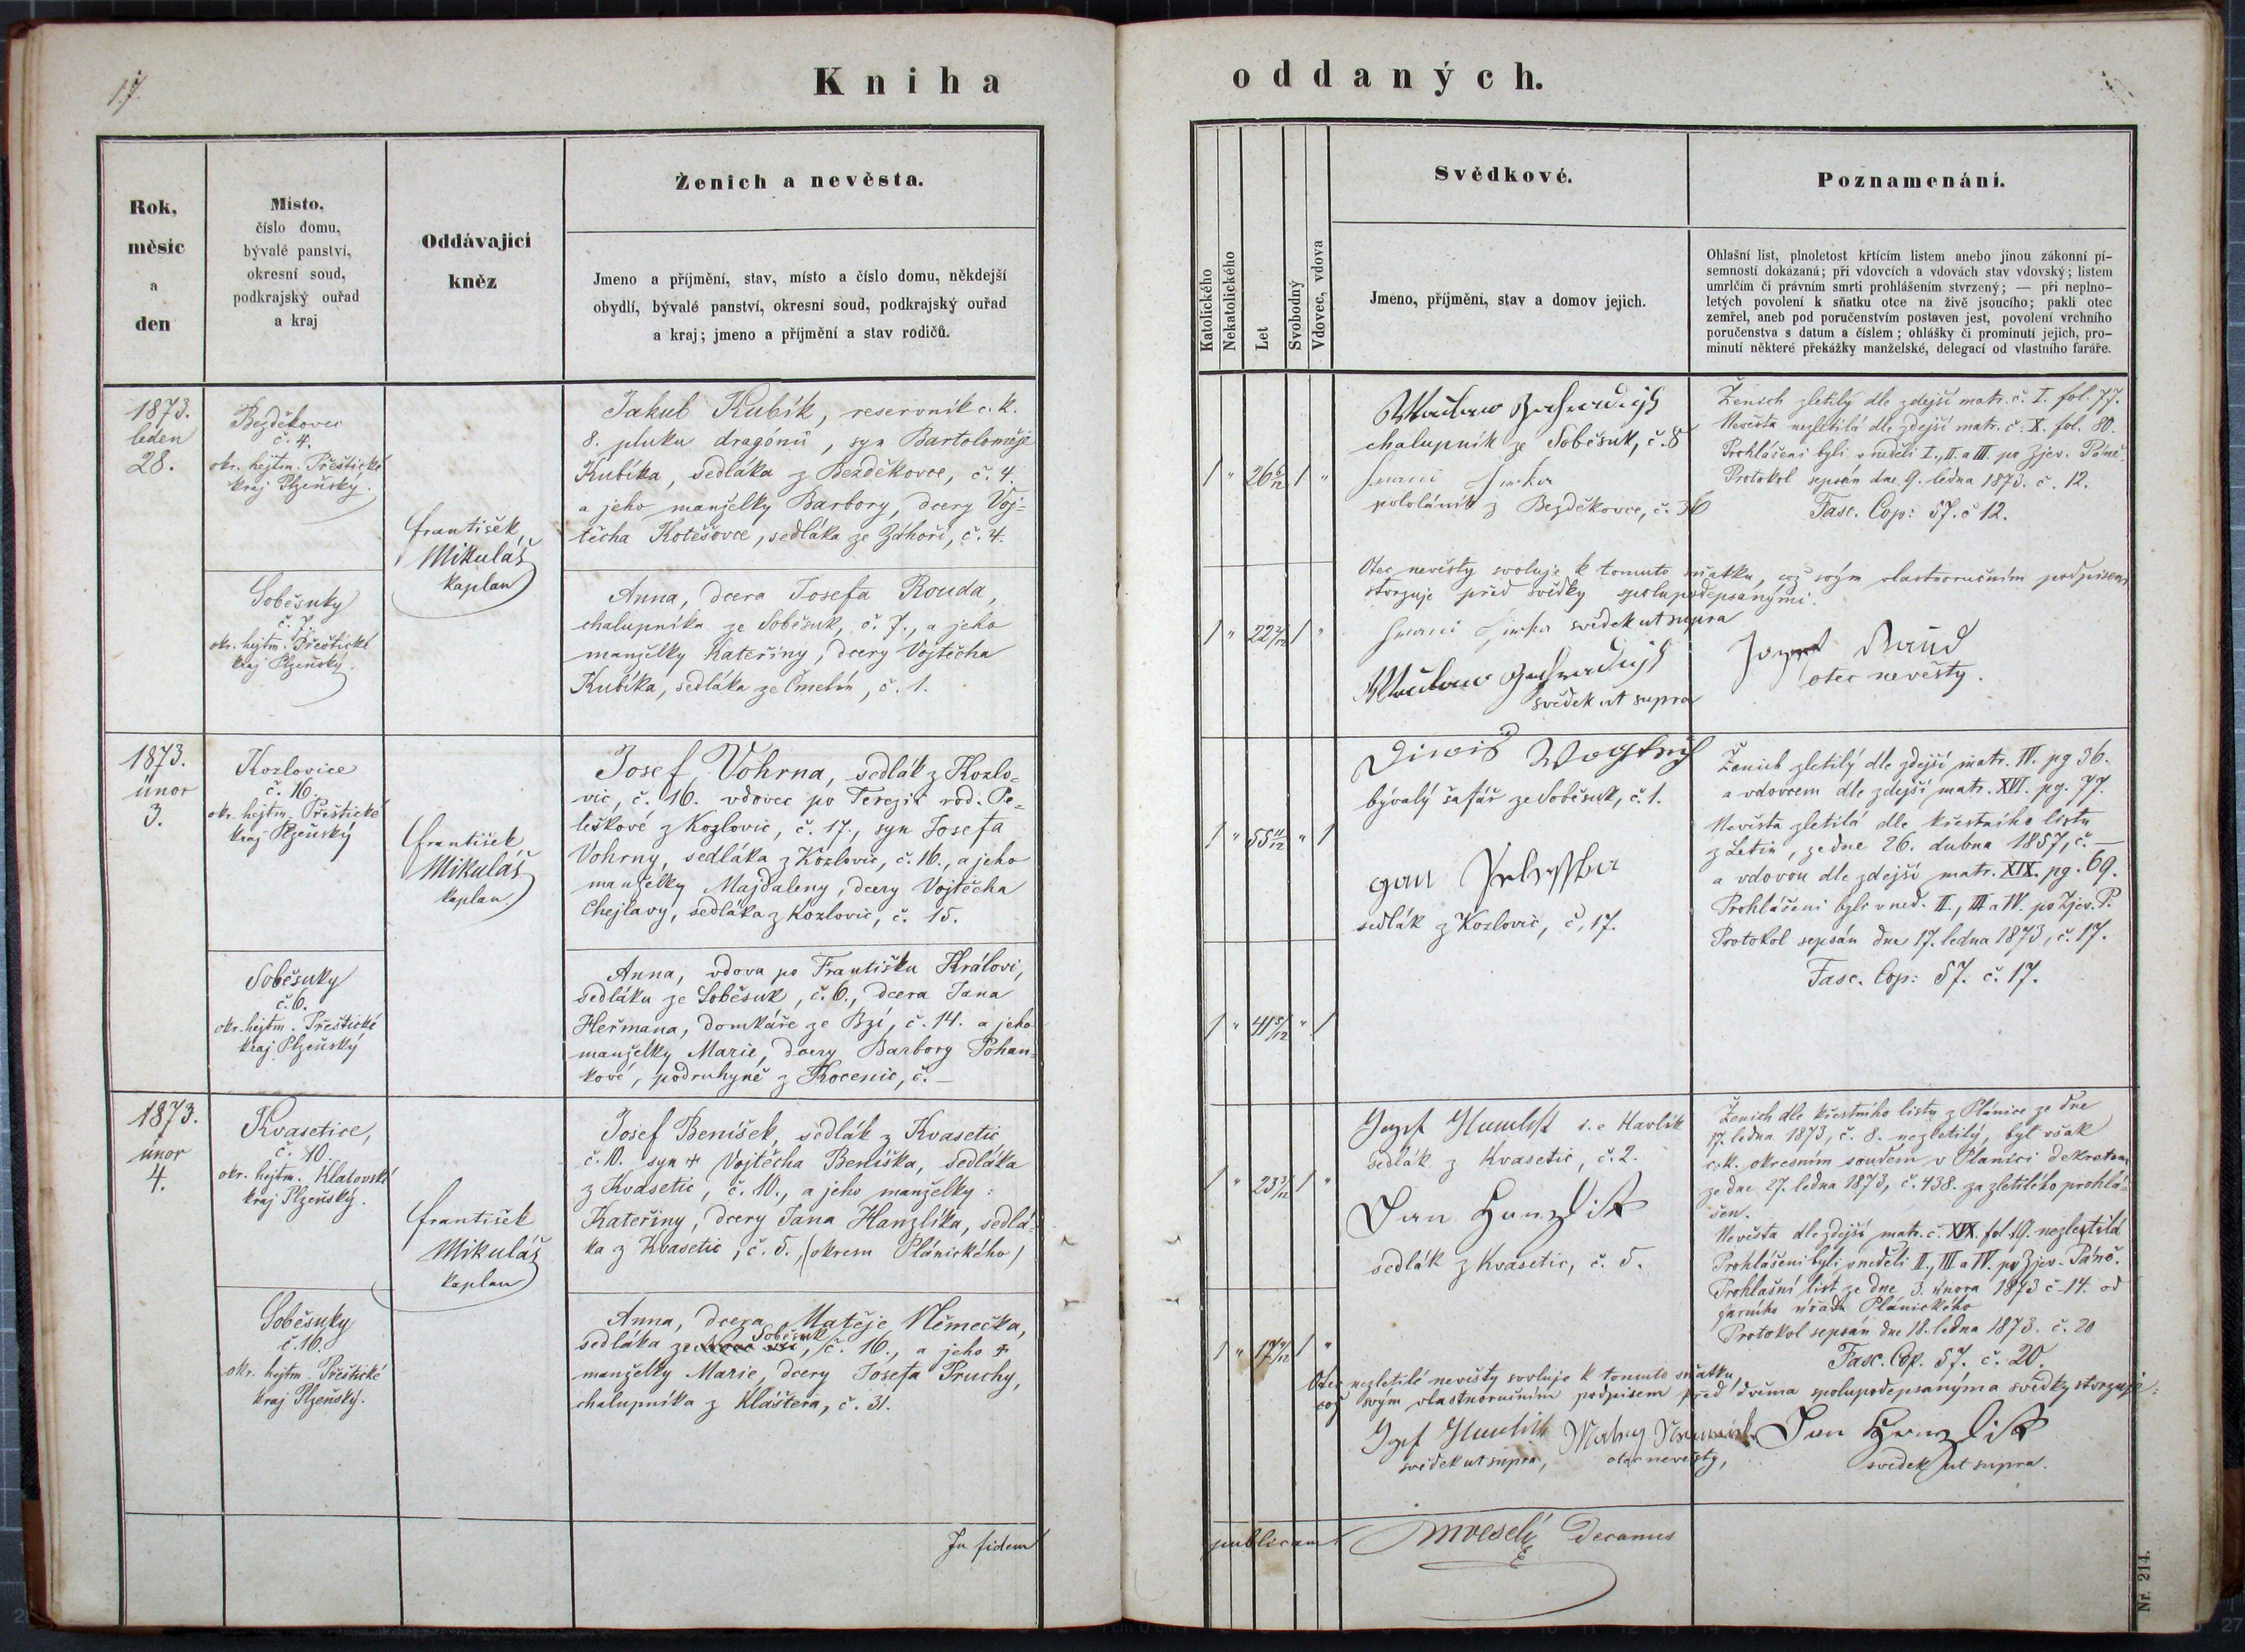 17.
Kniha
Rok,
měsíc
a
den
Místo,
číslo domu,
bývalé panství,
okresní soud,
podkrajský ouřad
a kraj
Oddávající
kněz
Ženich a nevěsta.
Jmeno a příjmění, stav, místo a číslo domu, někdejší
obydlí, bývalé panství, okresní soud, podkrajský ouřad
a kraj; jmeno a příjmění a stav rodičů.
1873.
leden
28.
Bezděkovec
č. 4.
okr. hejtm. Přeštické
kraj Plzeňský.
František
Mikuláš
kaplan
Jakub Kubík, reservník c. k.
8. pluku dragónů, syn Bartoloměje
Kubíka, sedláka z Bezděkovce, č. 4.
a jeho manželky Barbory, dcery Voj=
těcha Kotěšovce, sedláka ze Záhoří, č. 4.
Soběsuky
č. 7.
okr. hejtm. Přeštické
kraj Plzeňský.
Anna, dcera Josefa Rouda,
chalupníka ze Soběsuk, č. 7., a jeho
manželky Kateřiny, dcery Vojtěcha
Kubíka, sedláka ze Čmelín, č. 1.
1873.
únor
3.
Kozlovice
č. 16.
okr. hejtm. Přeštické
kraj Plzeňský
František
Mikuláš
kaplan.
Josef Vohrna, sedlák z Kozlo=
vic, č. 16. vdovec po Terezii rod. Pe=
leškové z Kozlovic, č. 17., syn Josefa
Vohrny, sedláka z Kozlovic, č. 16., a jeho
manželky Majdaleny, dcery Vojtěcha
Chejlavy, sedláka z Kozlovic, č. 15.
Soběsuky
č. 6.
okr. hejtm. Přeštické
kraj Plzeňský
Anna, vdova po Františku Královi,
sedláku ze Soběsuk, č. 6., dcera Jana
Heřmana, domkáře ze Bzí, č. 14. a jeho
manželky Marie, dcery Barbory Pohan=
kové, podruhyně z Kocenic, č. —
1873.
únor
4.
Kvasetice,
č. 10.
okr. hejtm. Klatovské
kraj Plzeňský.
František
Mikuláš
kaplan
Josef Beníšek, sedlák z Kvasetic
č. 10. syn + Vojtěcha Beníška, sedláka
z Kvasetic, č. 10., a jeho manželky:
Kateřiny, dcery Jana Hanzlíka, sedlá=
ka z Kvasetic, č. 5., (okresu Plánického)
Soběsuky
č. 16.
okr. hejtm. Přeštické
kraj Plzeňský.
Anna, dcera Matěje Němečka,
sedláka ze Soběsuk, č. 16., a jeho +
manželky Marie, dcery Josefa Pruchy,
chalupníka z Kláštera, č. 31.
In fidem
oddaných.
Katolického
Nekatolického
Let
Svobodný
Vdovec, vdova
Svědkové.
Jmeno, příjmění, stav a domov jejich.
Poznamenání.
Ohlašní list, plnoletost křtícím listem anebo jinou zákonní pí-
semností dokázaná; při vdovcích a vdovách stav vdovský; listem
umrlčím či právním smrti prohlášením stvrzený; — při neplno-
letých povolení k sňatku otce na živě jsoucího; pakli otec
zemřel, aneb pod poručenstvím postaven jest, povolení vrchního
poručenstva s datum a číslem; ohlášky či prominutí jejich, pro-
minutí některé překážky manželské, delegací od vlastního faráře.
1 " 26 6/12 1 "
chalupník ze Soběsuk, č. 8
pololáník z Bezděkovce, č. 36
Ženich zletilý dle zdejší matr. č. I. fol. 77.
Nevěsta nezletilá dle zdejší matr. č. X. fol. 80.
Prohlášeni byli v neděli I., II. a III. po Zjev. Páně.
Protokol sepsán dne 9. ledna 1873. č. 12.
Fasc. Cop: 57. č 12.
Otec nevěsty svoluje k tomuto sňatku, což svým vlastnoručním podpisem
stvrzuje před svědky spolupodepsanými.
1 " 22 2/12 1 "
svědek ut supra
svědek ut supra
otec nevěsty.
1 " 55 11/12 " 1
bývalý šafář ze Soběsuk, č. 1.
sedlák z Kozlovic, č. 17.
Ženich zletilý dle zdejší matr. IV. pg 36.
a vdovcem dle zdejší matr. XVI. pg. 77.
Nevěsta zletilá dle křestního listu
z Letin, ze dne 26. dubna 1857, č. —
a vdovou dle zdejší matr. XIX. pg. 69.
Prohlášeni byli v ned. II., III a IV. po Zjev. P.
Protokol sepsán dne 17. ledna 1873, č. 17.
Fasc. Cop: 57. č. 17.
1 " 41 5/12 " 1
1 " 23 3/12 1 "
Jozef Hawlik i. e Havlík
sedlák z Kvasetic, č. 2.
Jan Hanzlik
sedlák z Kvasetic, č. 5.
Ženich dle křestního listu z Plánice ze dne
17. ledna 1873, č. 8. nezletilý, byl však
c. k. okresním soudem v Plánici dekretem
ze dne 27. ledna 1873, č. 438. za zletilého prohlá=
šen.
Nevěsta dle zdejší matr. č. XIX. fol. 19. nezletilá
Prohlášeni byli v neděli II., III a IV. po Zjev. Páně.
Prohlašní list ze dne 3. února 1873 č. 14. od
farního úřadu Plánického
Protokol sepsán dne 18. ledna 1873. č. 20
Fasc. Cop. 57. č. 20.
1 " 17 1 "
Otec nezletilé nevěsty svoluje k tomuto sňatku,
což svým vlastnoručním podpisem před dvěma spolupodepsanýma svědky stvrzuje:
Jozef Hawlik Jan Hanzlik
svědek ut supra, otec nevěsty, svědek ut supra.
publicam. Decanus
Nr. 214.